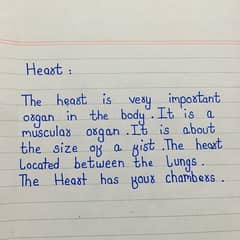 Heart :
The heart is very important
organ in the body . It is a
muscular organ . It is about
the size of a fist . The heart
located between the lungs .
The Heart has four chambers .